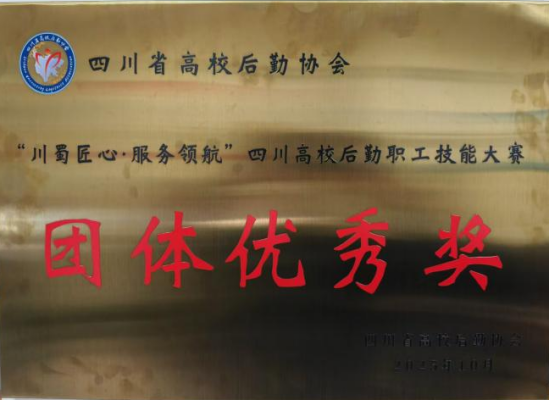 四川省高校后勤协会
“川蜀匠心·服务领航”四川高校后勤职工技能大赛
团体优秀奖
四川省高校后勤协会
2025年10月